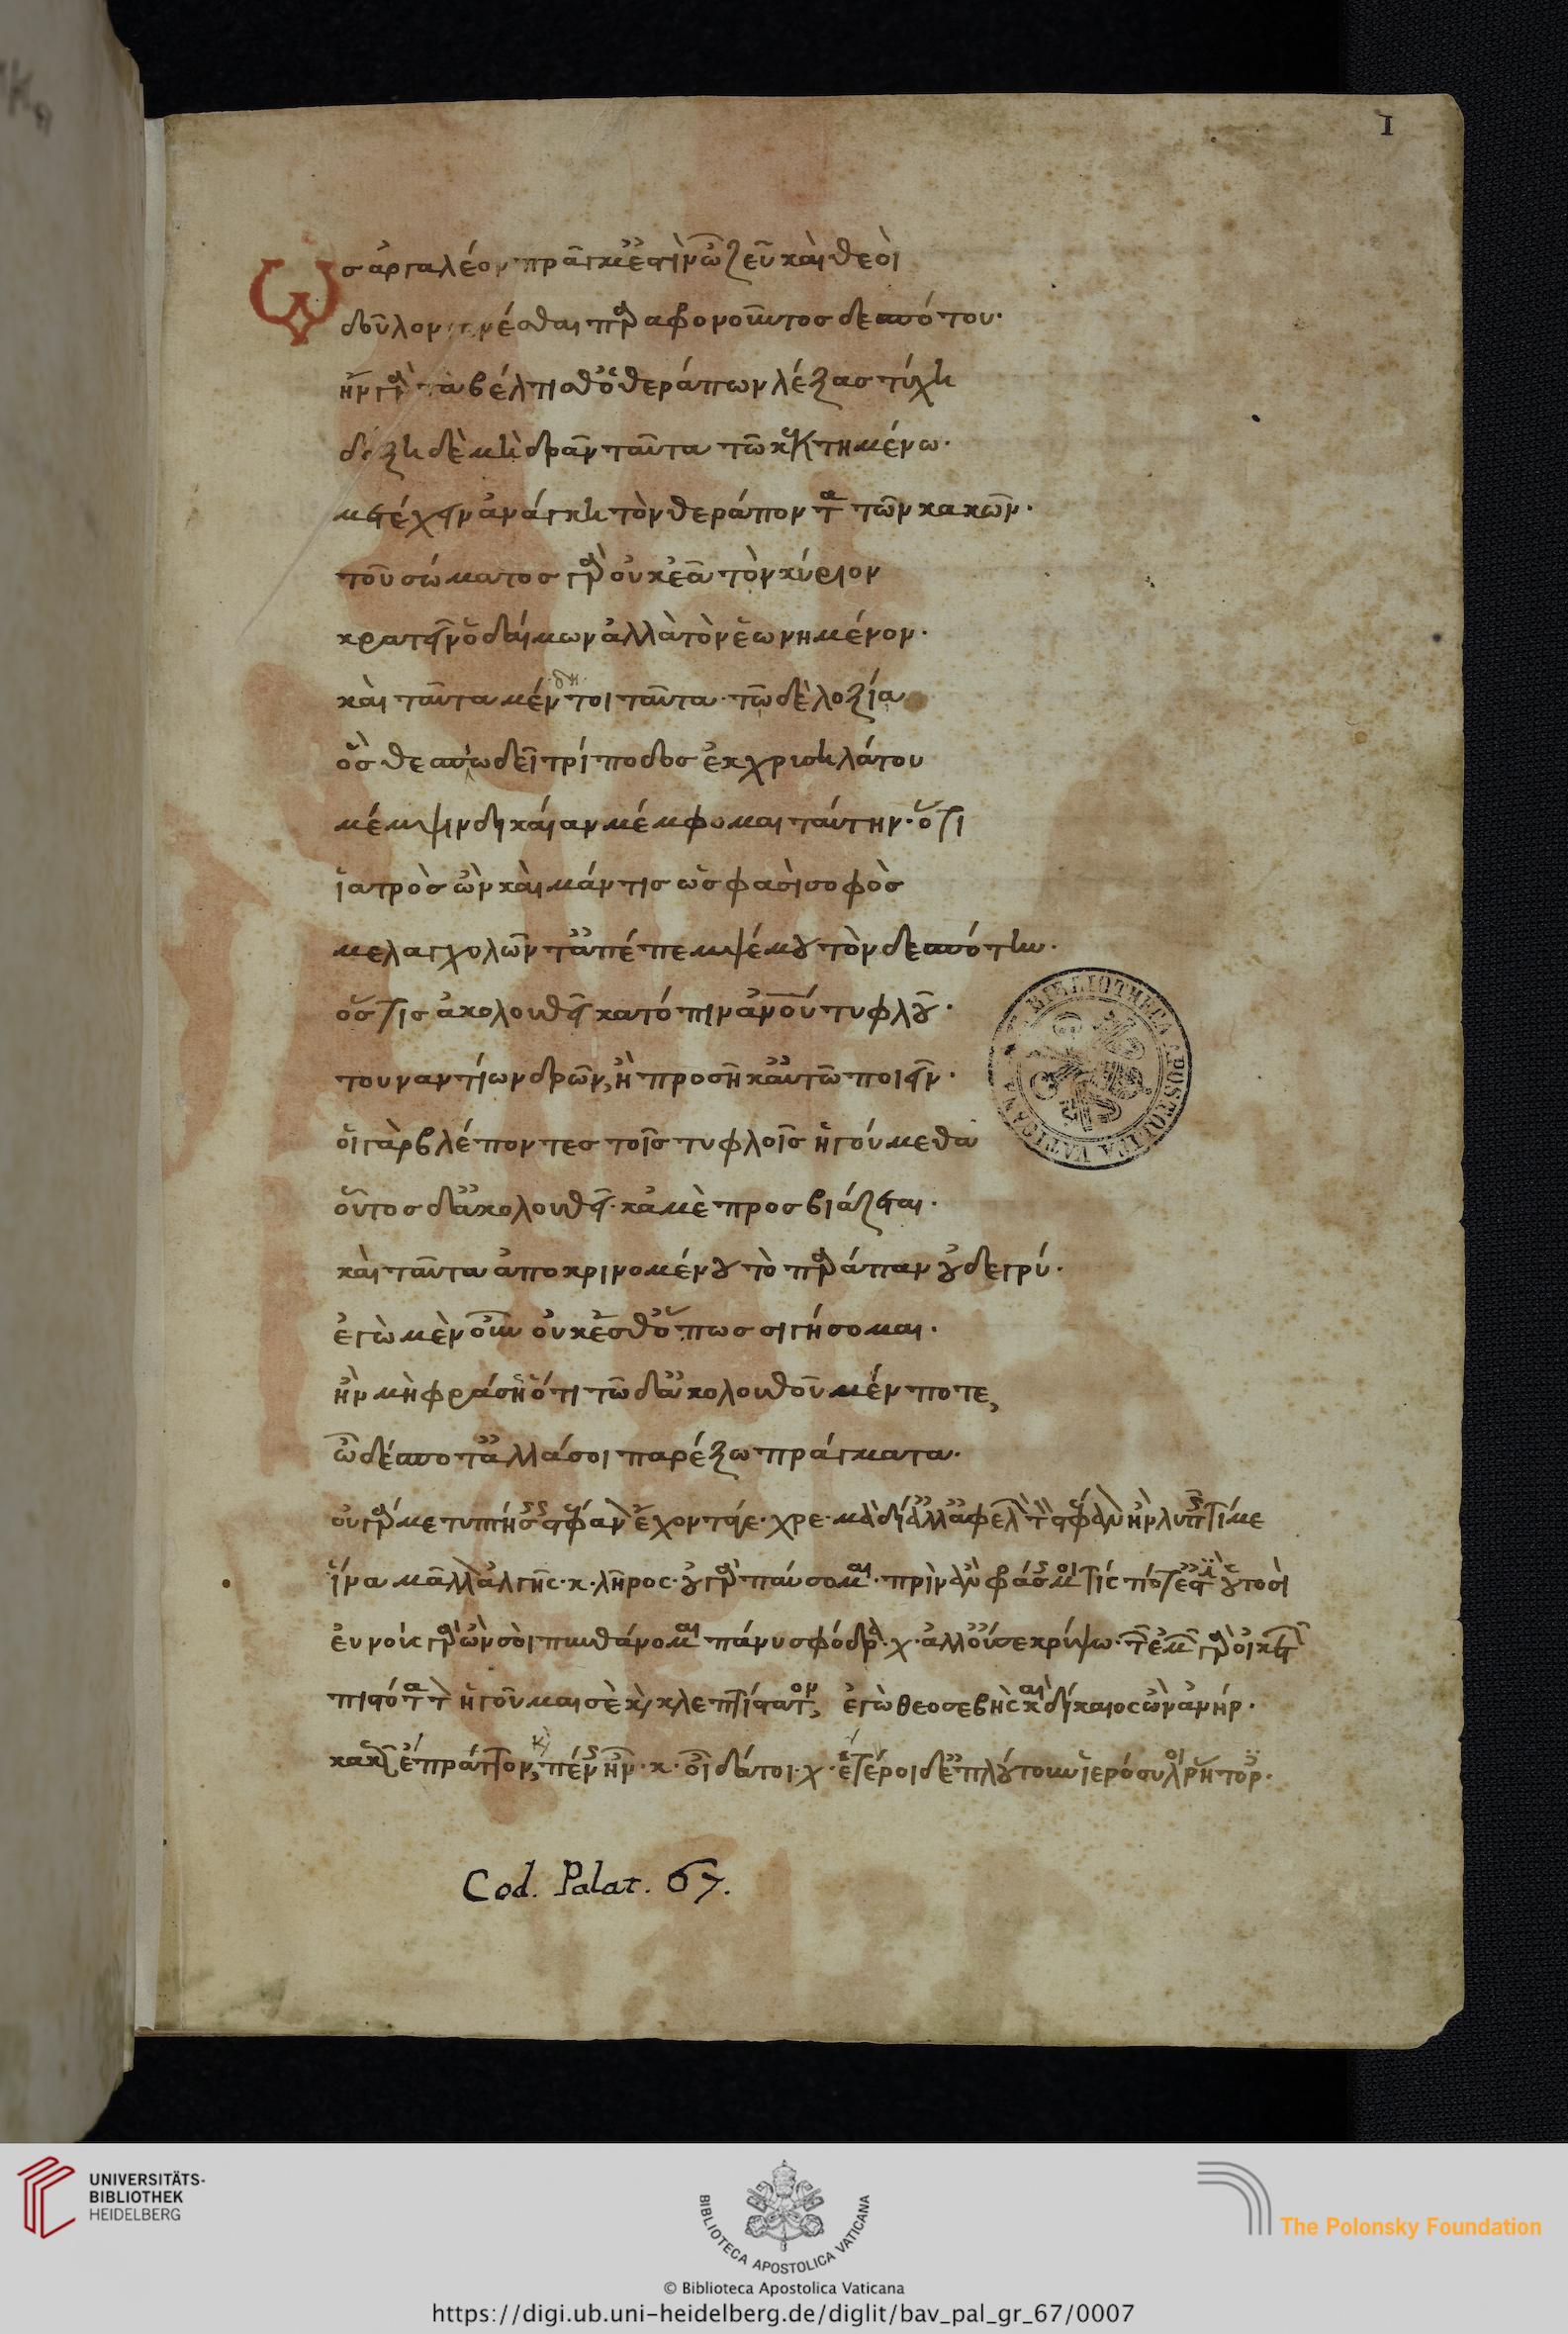 I
Ὡς ἀργαλέον πρᾶγμ' ἐστὶν ὦ ζεῦ καὶ θεοὶ
δοῦλον γενέσθαι παραφρονοῦντος δεσπότου·
ἢν γὰρ τὰ βέλτισθ' ὁ θεράπων λέξας τύχη
δόξη δὲ μὴ δρᾶν ταῦτα τῶ κεκτημένω·
μετέχειν ἀνάγκη τὸν θεράποντα τῶν κακῶν·
τοῦ σώματος γὰρ οὐκ ἐᾶ τὸν κύριον
κρατεῖν ὁ δαίμων ἀλλὰ τὸν ἐωνημένον·
καὶ ταῦτα μέν τοι ταῦτα· τῶ δὲ λοξία
δη
ὃς θεσπιωδεῖ τρίποδος ἐκ χρυσηλάτου
μέμψιν δικαίαν μέμφομαι ταύτην· ὅτι
ἰατρὸς ὢν καὶ μάντις ὥς φασι σοφὸς
μελαγχολῶντ' ἀπέπεμψέ μου τὸν δεσπότην·
ὅστις ἀκολουθεῖ κατόπιν ἀνου τυφλοῦ·
τουναντίων δρῶν, ἢ προσῆκ' αὐτῶ ποιεῖν·
οἱ γὰρ βλέποντες τοῖς τυφλοῖς ἡγούμεθα
οὗτος δ' ἀκολουθεῖ· κἀμὲ προσβιάζεται·
καὶ ταῦτα ἀποκρινομένου τὸ παράπαν οὐδε γρύ·
ἐγὼ μὲν οὖν οὐκ ἔσθ' ὅπως σιγήσομαι·
ἢν μὴ φράσης ὅτι τῶδ' ἀκολουθοῦμέν ποτε,
ὦ δέσποτ' ἀλλά σοι παρέξω πράγματα·
οὐ γάρ με τυπτήσεις στέφανον ἔχοντά γε· χρε· μὰ δί' ἀλλ' ἀφελὼν τὸν στέφανον ἢν λυπῆς τί με
ἵνα μᾶλλον ἀλγῆς· κ· λῆρος· οὐ γὰρ παύσομαι· πρὶν ἂν φράσης μοι τίς ποτ' ἐστὶν οὑτοσὶ
εὔνοις γὰρ ὢν σοὶ πυνθάνομαι πάνυ σφόδρα· χ· ἀλλ' οὔ σε κρύψω· τῶν ἐμῶν γὰρ οἰκετῶν
πιστότατον ἡγοῦμαι σὲ καὶ κλεπτίστατον, ἐγὼ θεοσεβὴς καὶ δίκαιος ὢν ἀνήρ·
κακῶς ἔπραττον, καὶ πένης ἦν· κ· οἶδά τοι· χ· ἕτεροι δ' ἐπλούτουν ἱερόσυλοι ῥήτορ·
BIBLIOTHECA APOSTOLICA VATICANA
Cod. Palat. 67.
UNIVERSITÄTS-
BIBLIOTHEK
HEIDELBERG
BIBLIOTECA APOSTOLICA VATICANA
The Polonsky Foundation
© Biblioteca Apostolica Vaticana
https://digi.ub.uni-heidelberg.de/diglit/bav_pal_gr_67/0007